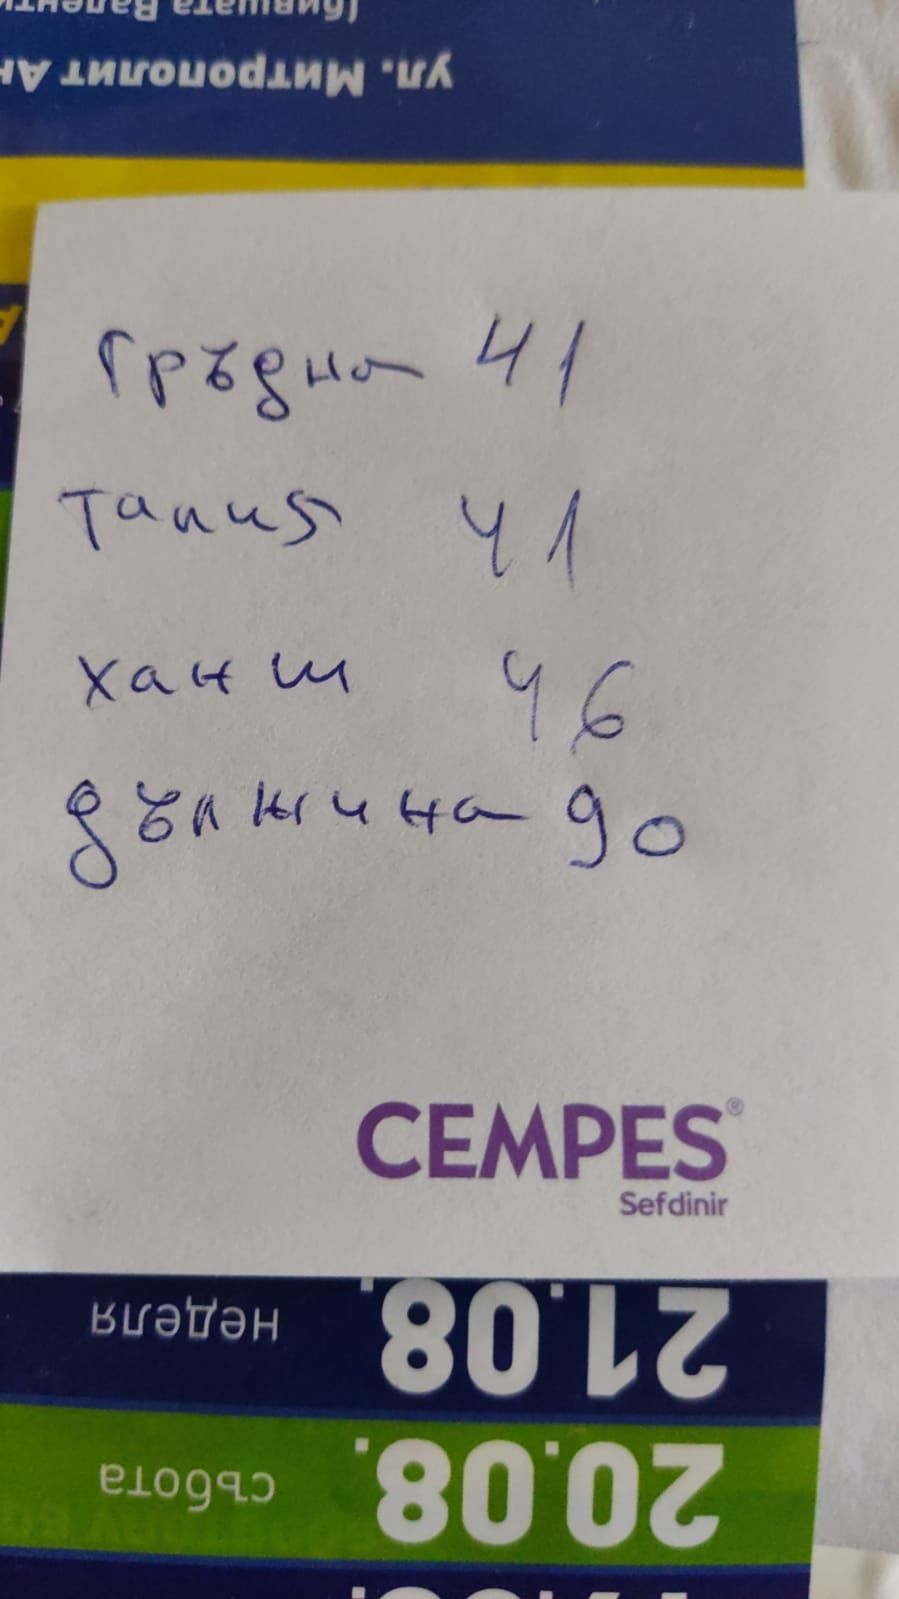 (бившата Валенти
ул. Митрополит Ан
Гръдна 41
Талия 41
ханш 46
дължина 90
CEMPES®
Sefdinir
21.08.
неделя
20.08.
събота